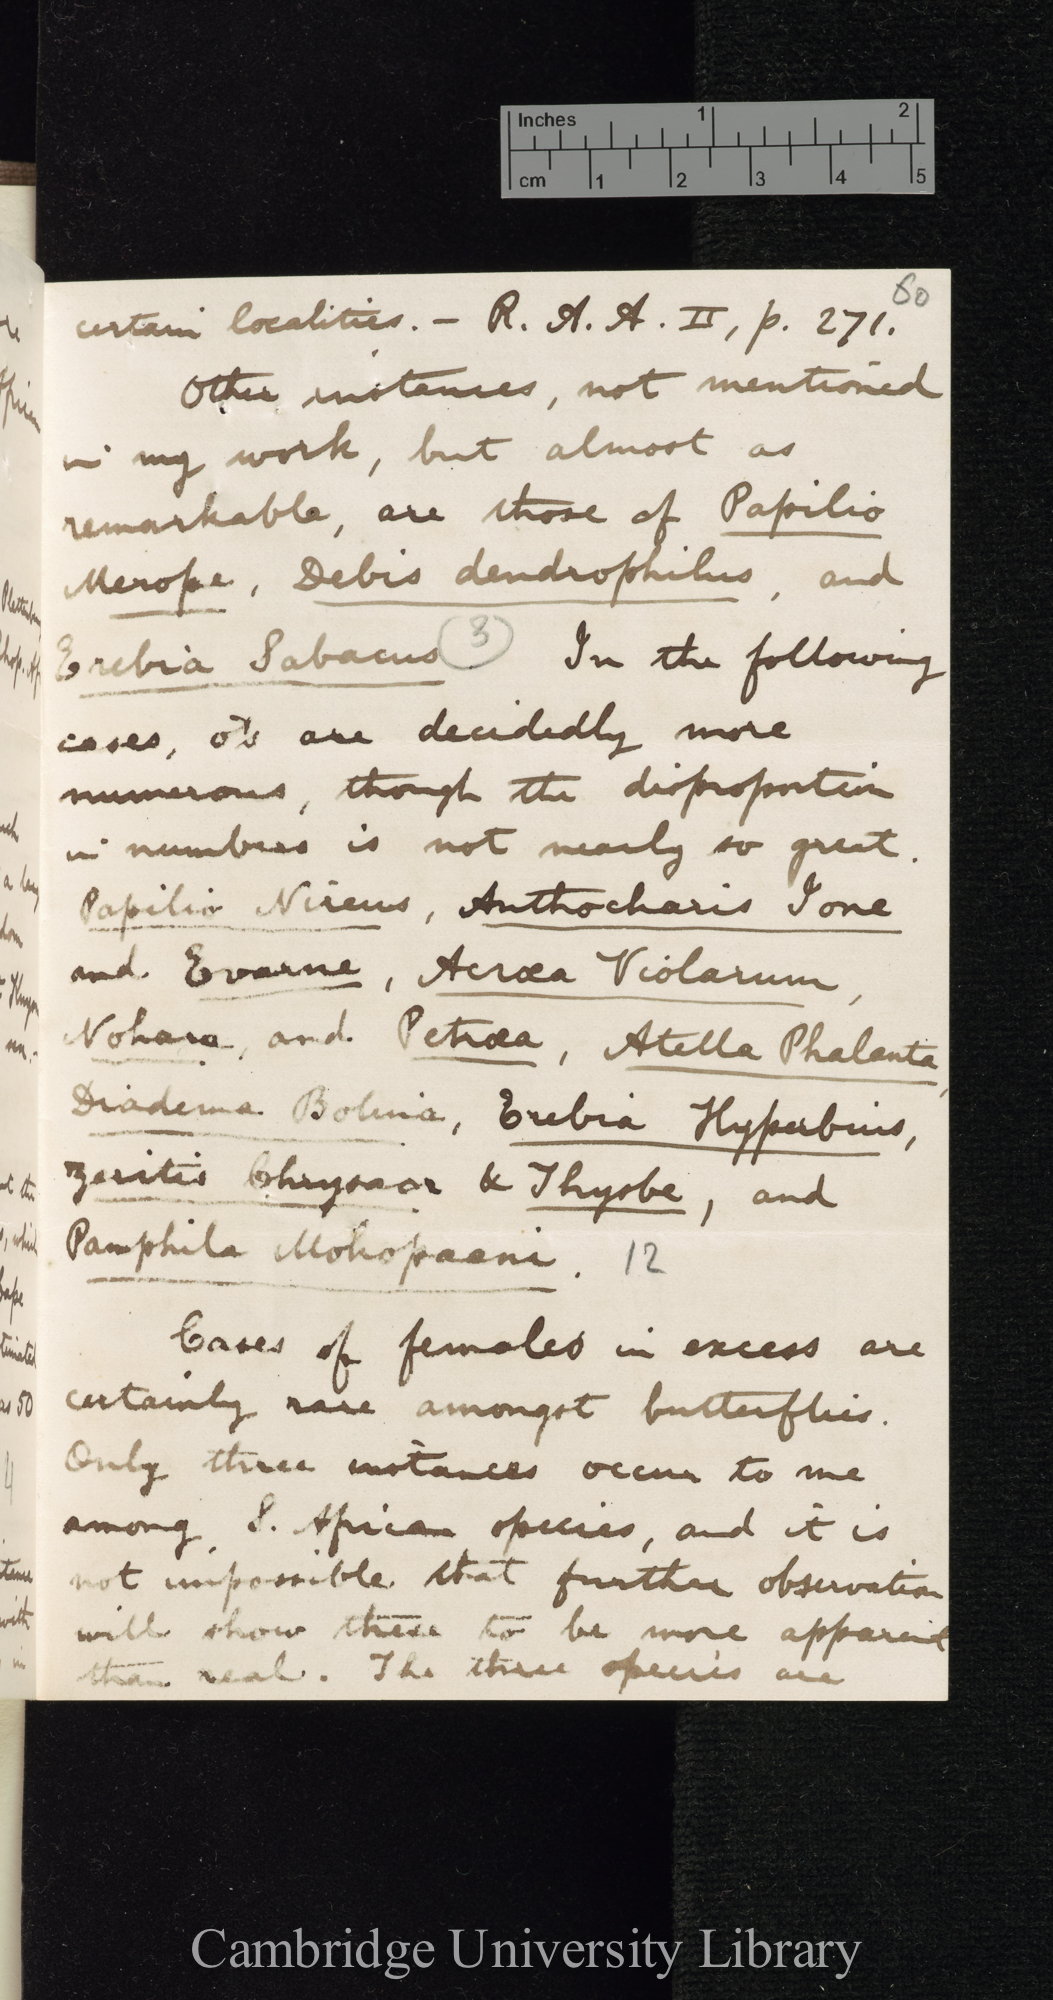 Inches 1 2
cm 1 2 3 4 5
60
certain localities. – R. A. A. II, p. 271.
Other instances, not mentioned
in my work, but almost as
remarkable, are those of Papilio
Merope, Debis dendrophilus, and
Erebia Sabacus (3) In the following
cases, ♂s are decidedly more
numerous, though the disproportion
in numbers is not nearly so great.
Papilio Nireus, Anthocharis Ione
and Evarne, Acræa Violarum,
Nohara, and Petræa, Atella Phalanta,
Diadema Bolina, Erebia Hyperbius,
Zeritis Chrysaor & Thysbe, and
Pamphila Mohopaani. 12
Cases of females in excess are
certainly rare amongst butterflies.
Only three instances occur to me
among S. African species, and it is
not impossible that further observation
will show these to be more apparent
than real. The three species are
Cambridge University Library